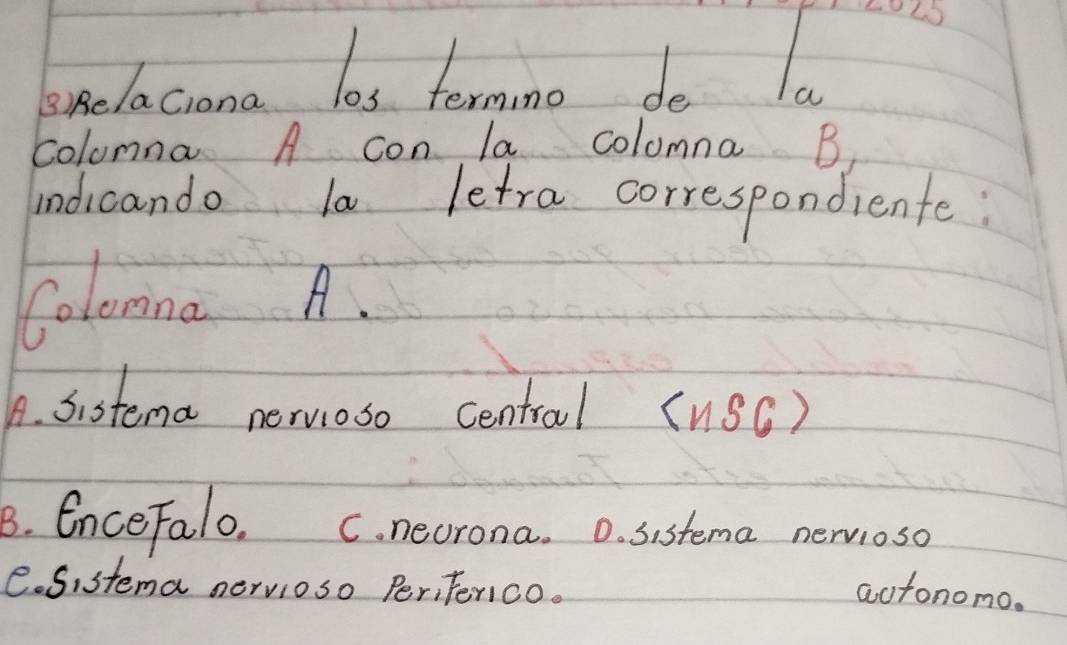 2025
3) Relaciona los termino de la
columna A con la columna B,
indicando la letra correspondiente:
Columna A.
A. Sistema nervioso central (NSC)
B. Encefalo. C. neurona. D. sistema nervioso
e. Sistema nervioso Periferico. autonomo.